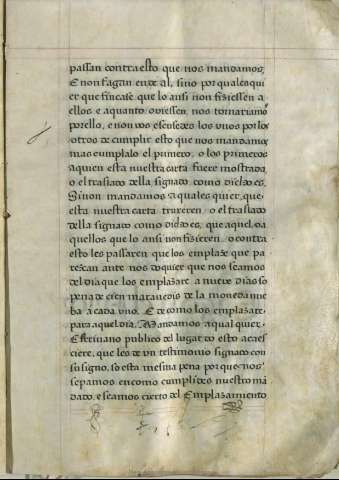 passan contra esto que nos mandamos,
E non fagan ende al, sino por qualesqui
er que fincase que lo ansi non fiziessen a
ellos e a quanto oviessen, nos tornariamos
por ello, e non vos escusedes los vnos por los
otros de cumplir esto que nos mandamos
mas cumplalo el primero, o los primeros
a quien esta nuestra carta fuere mostrada
o el traslado della signado como dicho es.
Sinon mandamos a quales quier, que
esta nuestra carta truxeren, o el traslado
della signado como dicho es, que aquel, o a
quellos que lo ansi non fizieren, o contra
esto les passaren que los emplaze que pa
rezcan ante nos doquier que nos seamos
del dia que los emplazare a nueve dias so
pena de cien maravedis de la moneda nue
ba a cada vno, E de como los emplazare
para aquel dia, Mandamos a qual quier
Escrivano publico del lugar do esto acaes
ciere, que les de vn testimonio signado con
su signo, so esta mesma pena por que nos
sepamos en como cumplides nuestro mā
dado, e seamos cierto del Emplazamiento